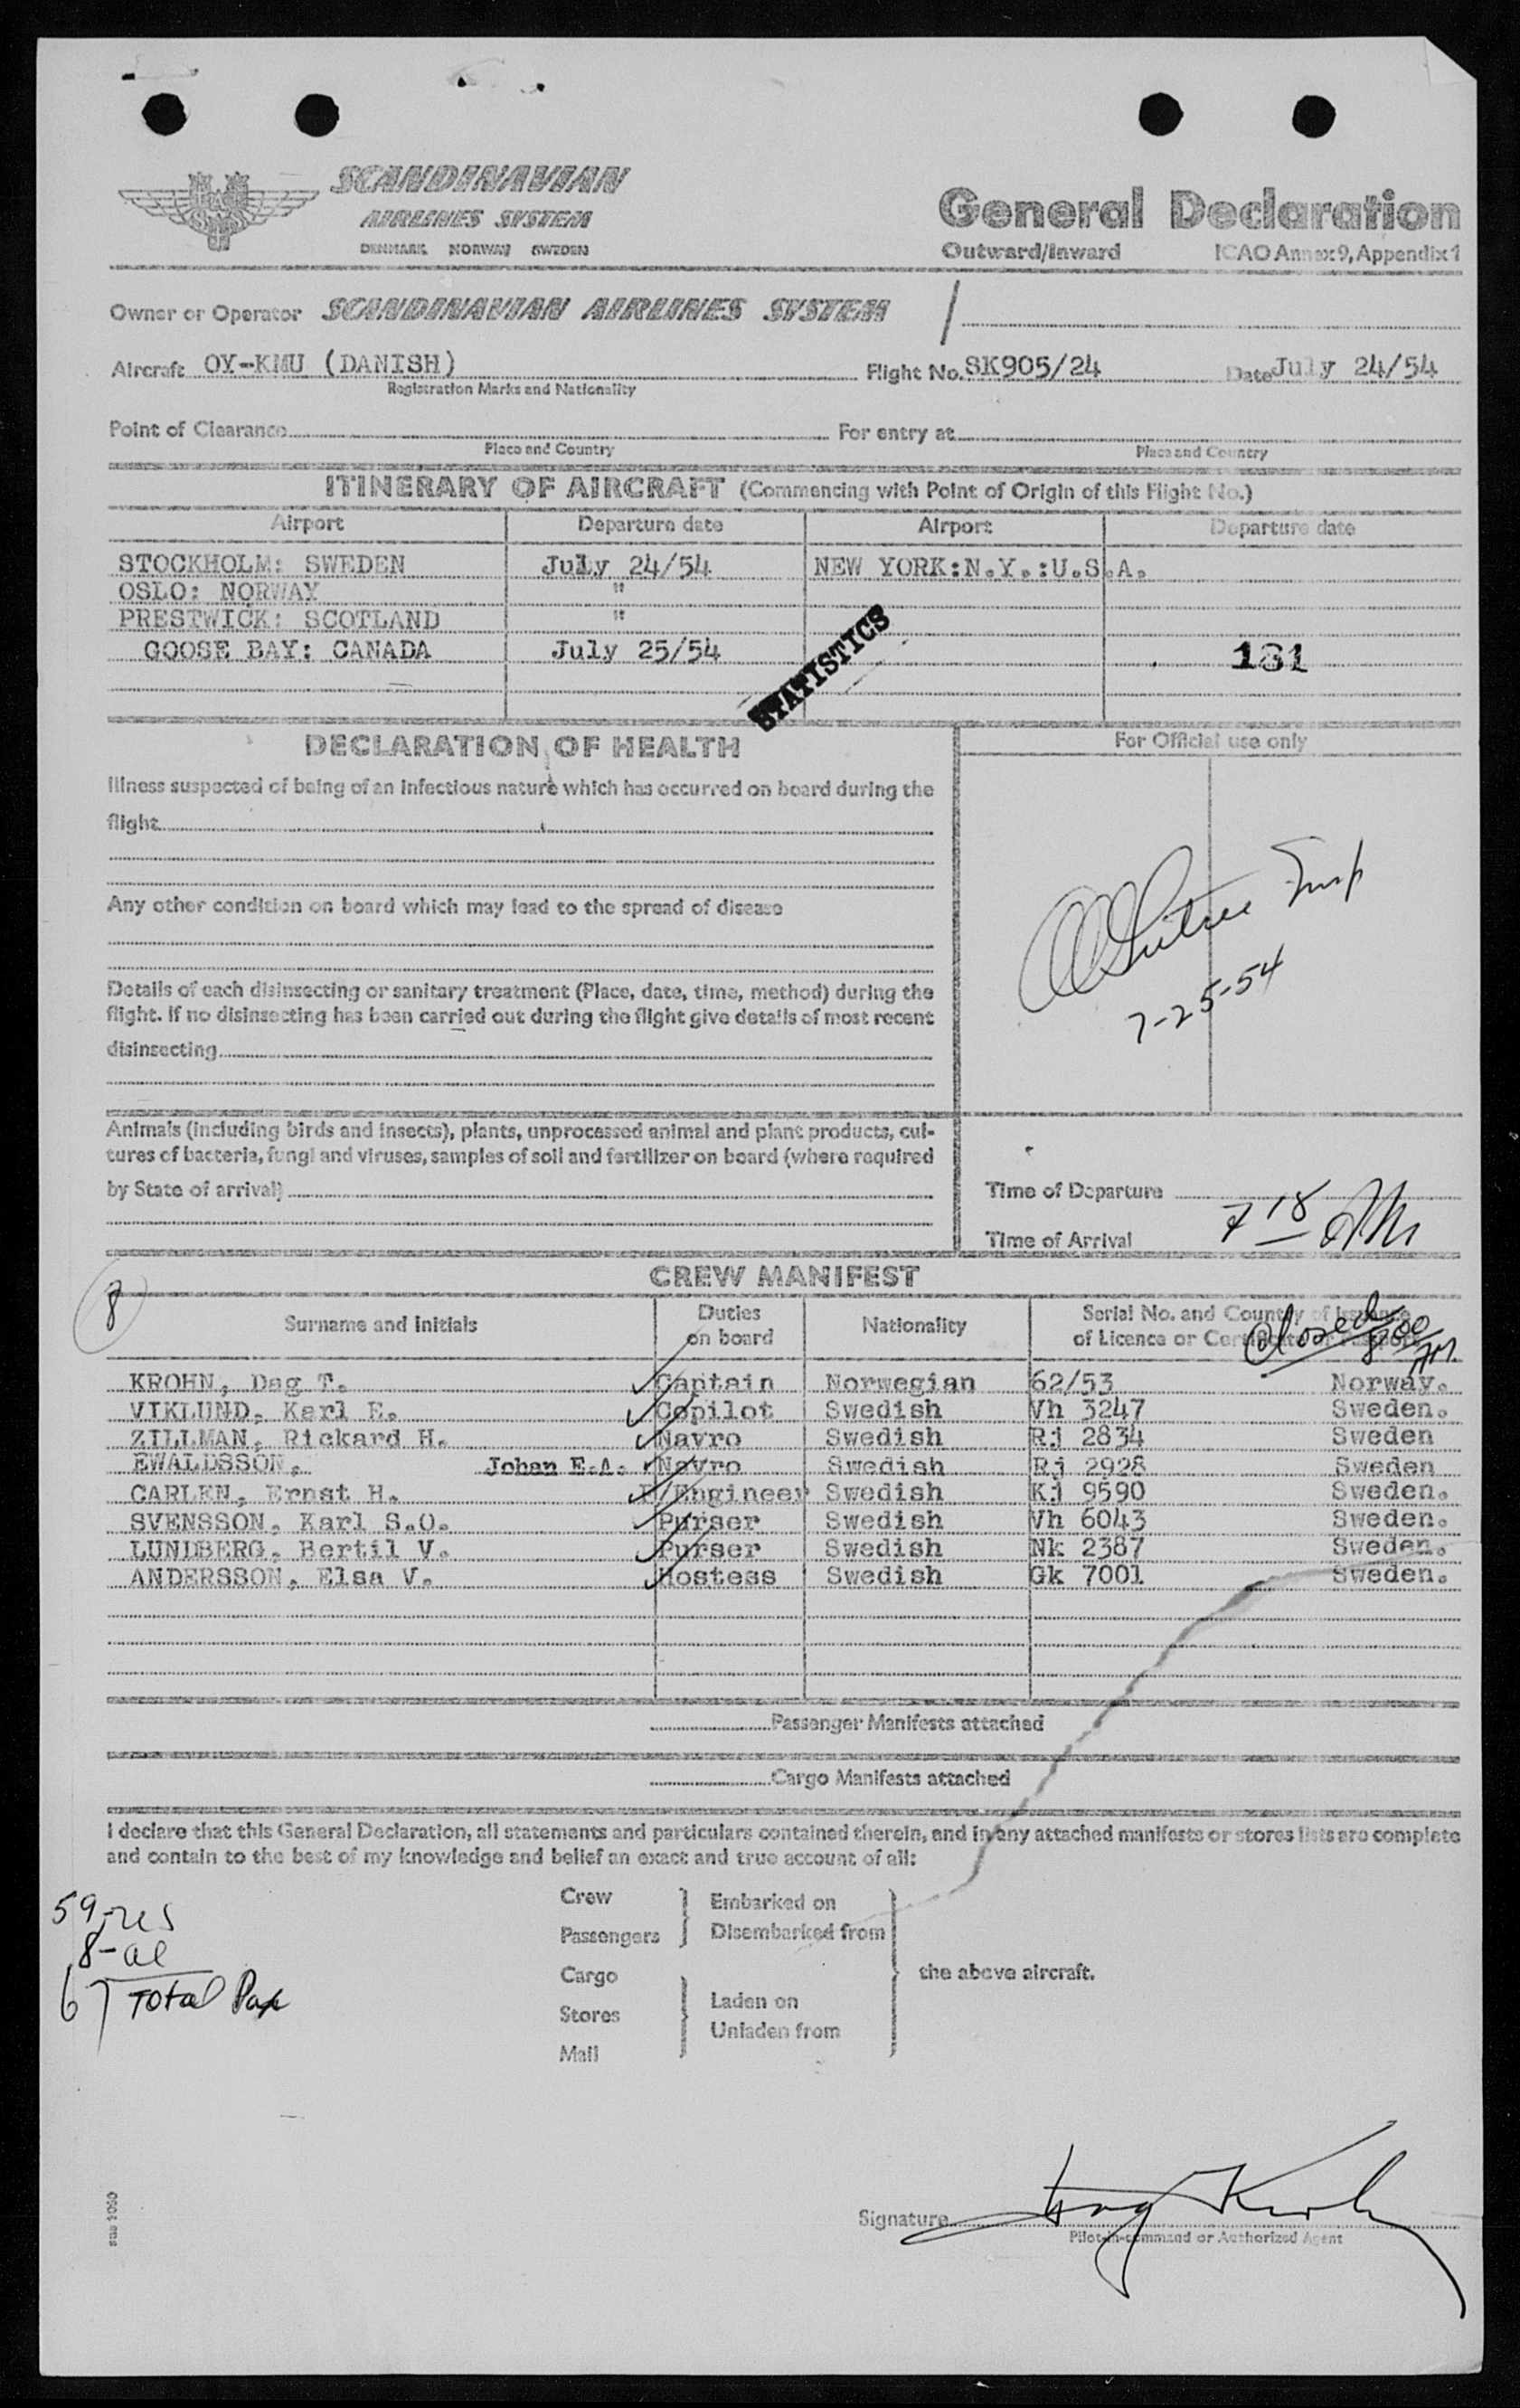 SCANDINAVIAN
AIRLINES SYSTEM
DENMARK NORWAY SWEDEN
General Declaration
Outward/Inward ICAO Annex 9, Appendix 1
Owner or Operator SCANDINAVIAN AIRLINES SYSTEM
Aircraft OY-KMU (DANISH) Flight No. SK905/24 Date July 24/54
Registration Marks and Nationality
Point of Clearance For entry at
Place and Country Place and Country
ITINERARY OF AIRCRAFT (Commencing with Point of Origin of this Flight No.)
Airport Departure date Airport Departure date
STOCKHOLM: SWEDEN July 24/54 NEW YORK:N.Y.:U.S.A.
OSLO: NORWAY "
PRESTWICK: SCOTLAND "
GOOSE BAY: CANADA July 25/54 181
STATISTICS
DECLARATION OF HEALTH
For Official use only
Illness suspected of being of an infectious nature which has occurred on board during the
flight
Any other condition on board which may lead to the spread of disease
Details of each disinsecting or sanitary treatment (Place, date, time, method) during the
flight. If no disinsecting has been carried out during the flight give details of most recent
disinsecting
7-25-54
Animals (including birds and insects), plants, unprocessed animal and plant products, cul-
tures of bacteria, fungi and viruses, samples of soil and fertilizer on board (where required
by State of arrival)
Time of Departure
Time of Arrival 7 18 AM
CREW MANIFEST
8
Surname and Initials Duties on board Nationality Serial No. and Country of Issuance of Licence or Certificate
Closed 8 00 AM.
KROHN, Dag T. Captain Norwegian 62/53 Norway.
VIKLUND, Karl E. Copilot Swedish Vh 3247 Sweden.
ZILLMAN, Rickard H. Navro Swedish Rj 2834 Sweden
EWALDSSON, Johan E.A. Navro Swedish Rj 2928 Sweden
CARLEN, Ernst H. F/Engineer Swedish Kj 9590 Sweden.
SVENSSON, Karl S.O. Purser Swedish Vh 6043 Sweden.
LUNDBERG, Bertil V. Purser Swedish Nk 2387 Sweden.
ANDERSSON, Elsa V. Hostess Swedish Gk 7001 Sweden.
Passenger Manifests attached
Cargo Manifests attached
I declare that this General Declaration, all statements and particulars contained therein, and in any attached manifests or stores lists are complete
and contain to the best of my knowledge and belief an exact and true account of all:
Crew Embarked on
Passengers Disembarked from
Cargo the above aircraft.
Stores Laden on
Unladen from
Mail
59-res
8-al
67 Total Pax
Signature Dag Krohn
Pilot-in-command or Authorized Agent
sas 1060